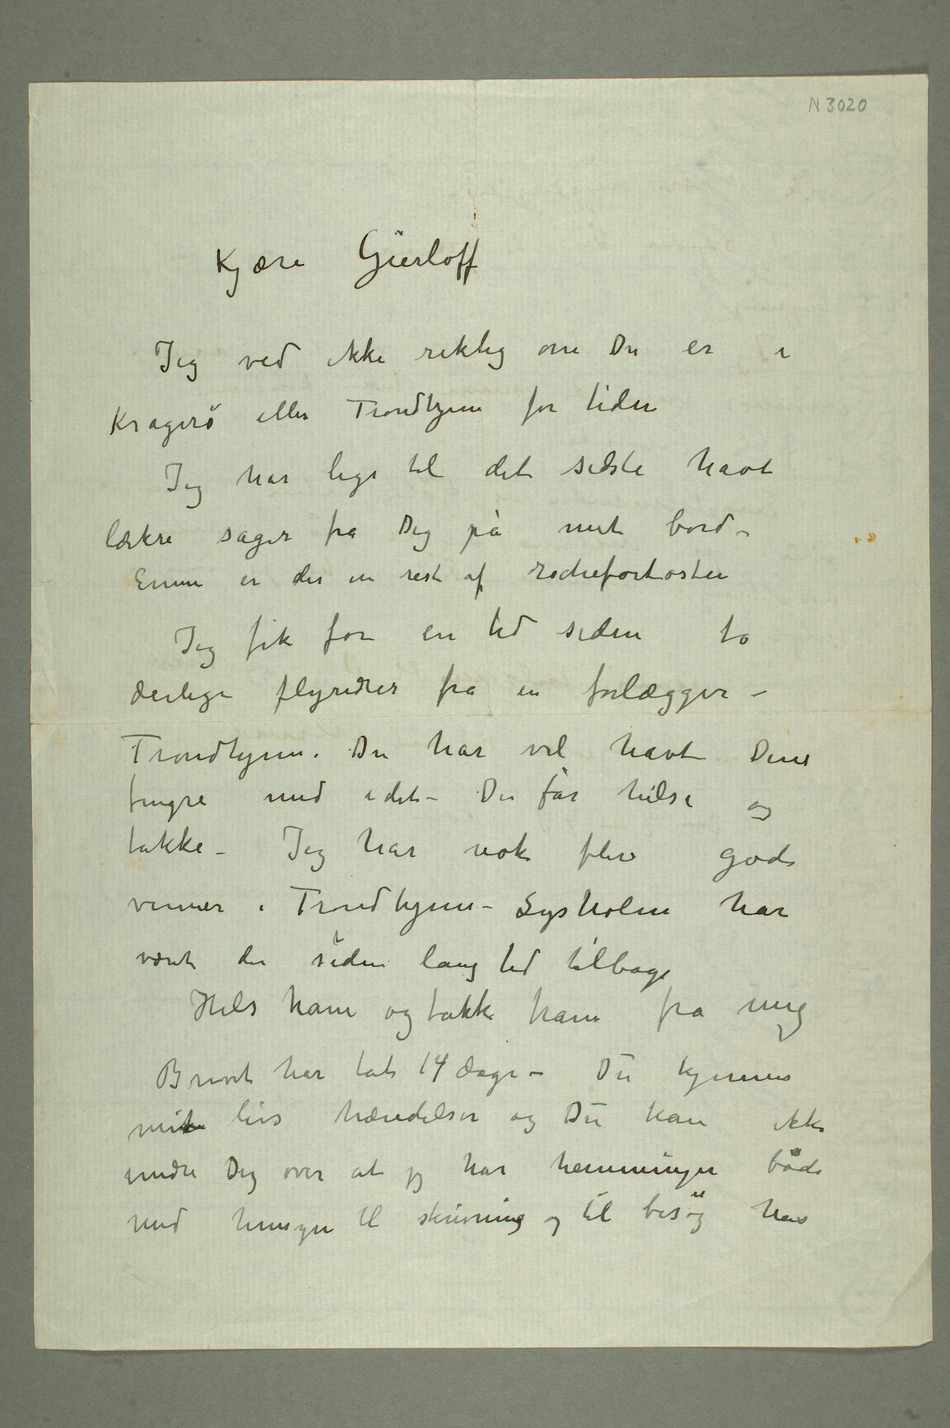 N 3020
Kjære Gierløff
Jeg ved ikke riktig om Du er i
Kragerö eller Trondhjem for tiden
Jeg har lige til det sidste havt
lækre sager fra Dig på mit bord –
Ennu er der en rest af rochefortosten
Jeg fik for en tid siden to
deilige flyndrer fra en forlægger –
Trondhjem. Du har vel havt Dine
fingre med i det – Du får hilse og
takke – Jeg har nok flere gode
venner i Trondhjem – Lysholm har
vært det siden lang tid tilbage
Hils ham og takk ham fra mig
Brevet har tat 14 dage – Du kjenner
mit livs hændelser og Du kan ikke
undre Dig over at jeg har hemninger både
med hensyn til skrivning og til besög hos